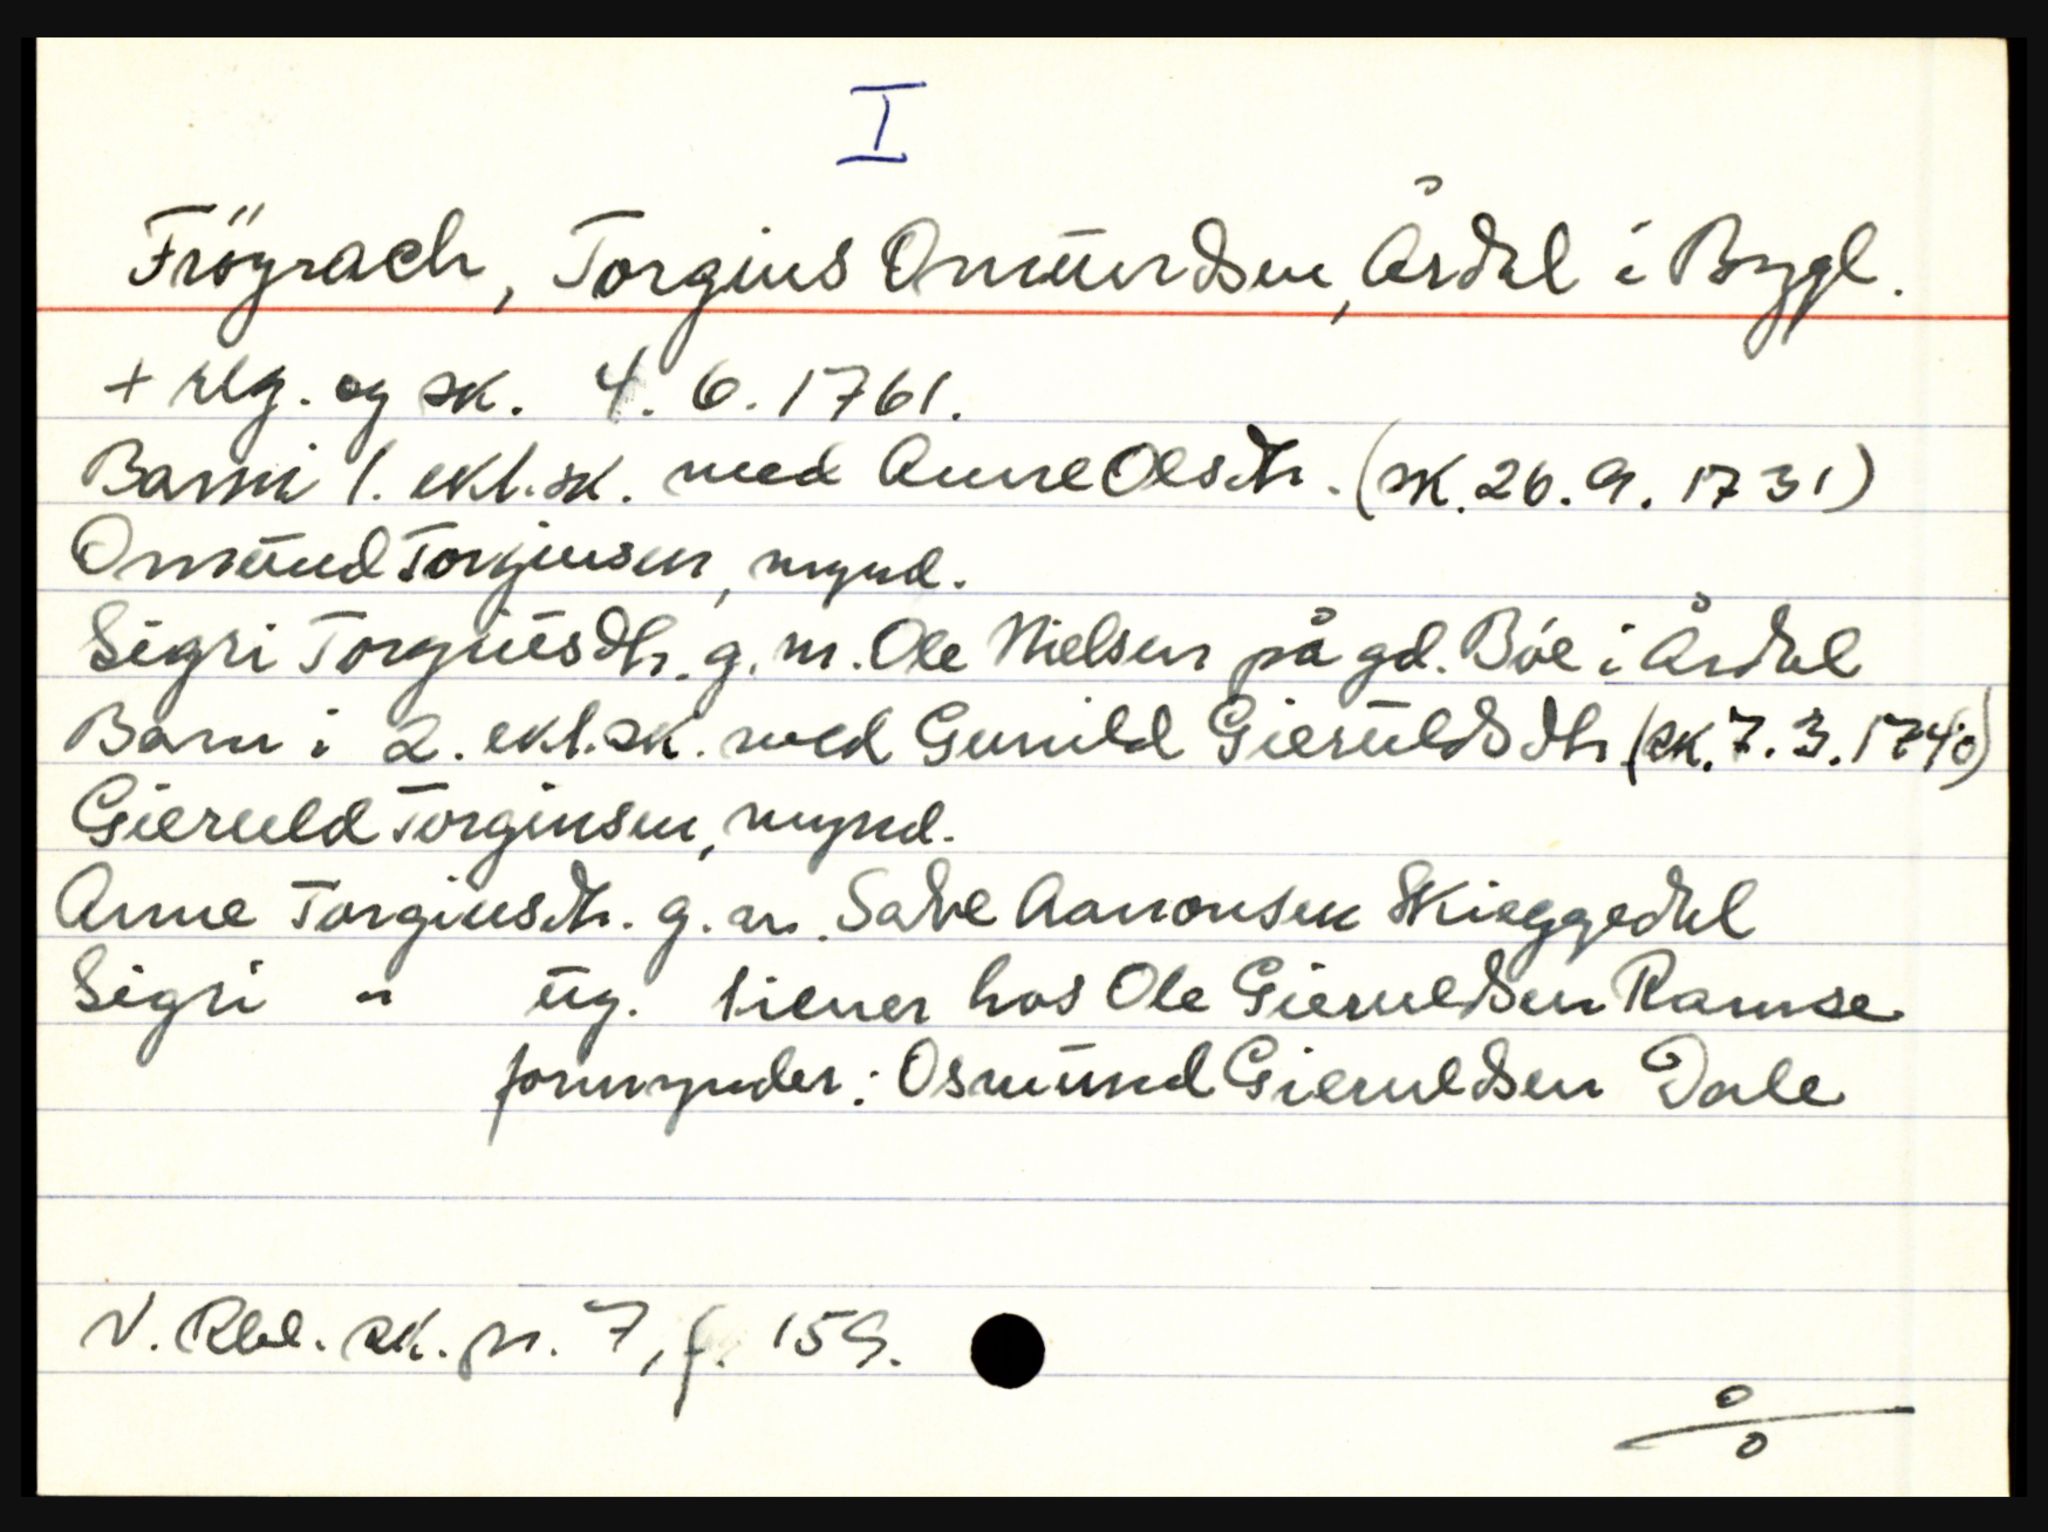 I
Fröyrach, Torgius Omŭndsen, Årdal i Bygl.
+ rlg. og sk. 4. 6. 1761.
Barn i 1. ekt.sk. med Anne Olsdtr. (sk. 26. 9. 1731)
Omŭnd Torgiusen, mynd.
Sigri Torgiusdtr. g. m. Ole Nielsen på gd. Böe i Årdal
Barn i 2. ekt.sk. med Gunild Gierŭldsdtr. (sk. 7. 3. 1740)
Gieruld Torgiusen, mynd.
Anne Torgiusdtr. g. m. Salve Aanonsen Skieggedal
Sigri " ŭg. tiener hos Ole Gieruldsen Ramse
formynder: Osmŭnd Gieruldsen Dale
N. Rbl. sk. pr. 7, f. 159.
o/o